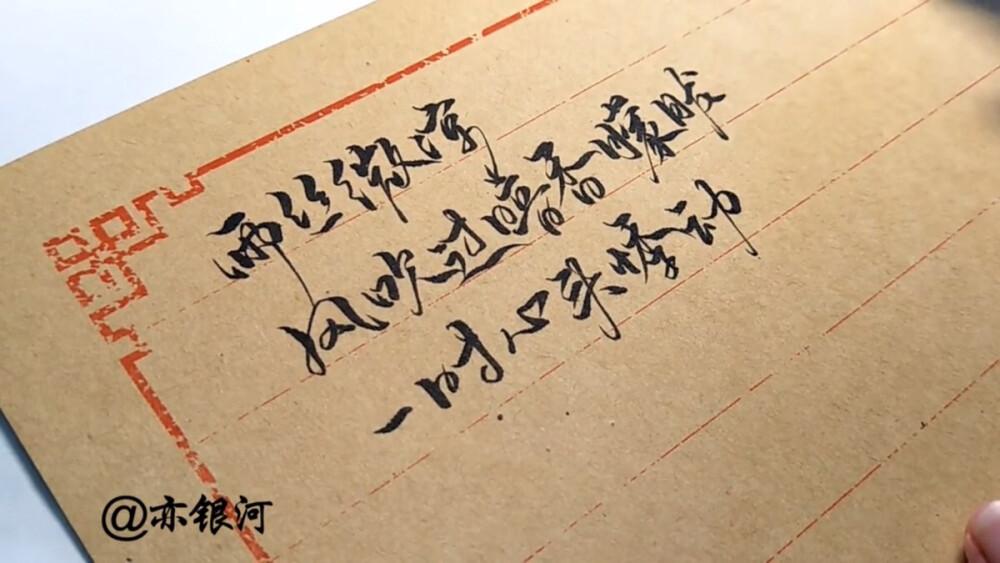 雨丝微凉
风吹过暗香朦胧
一时心头悸动
@亦银河